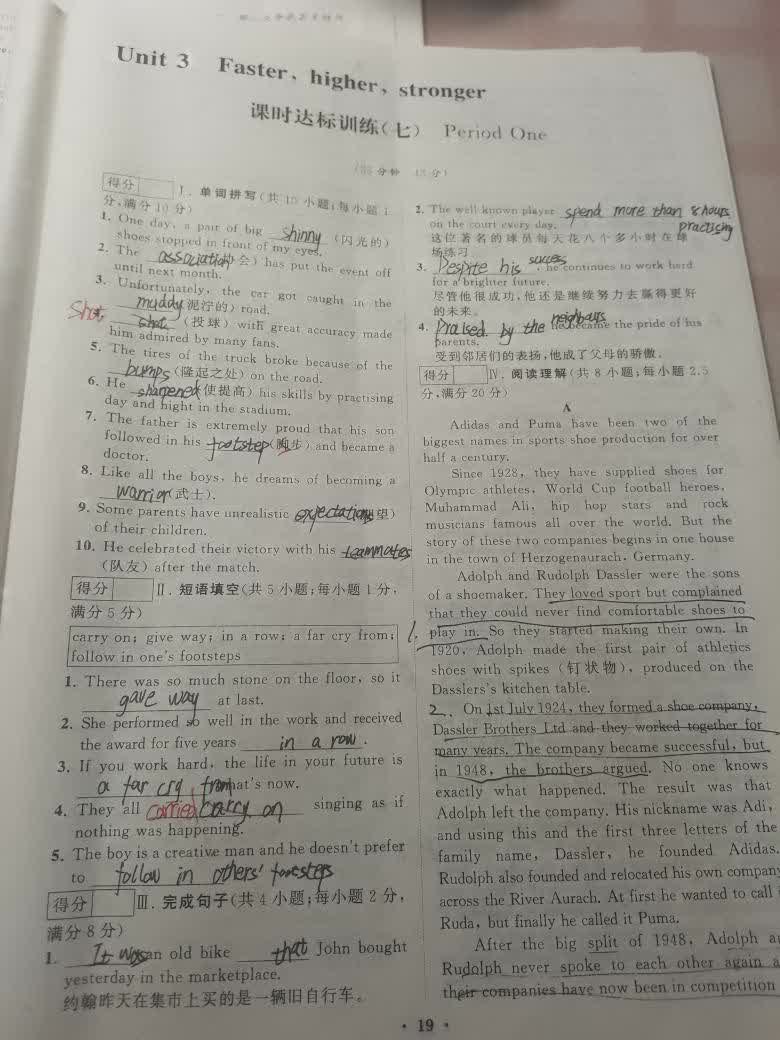 Unit 3 Faster, higher, stronger
课时达标训练(七) Period One
得分 Ⅰ. 单词拼写(共10小题;每小题1
分,满分10分)
1. One day, a pair of big shinny (闪光的)
shoes stopped in front of my eyes.
2. The association (会) has put the event off
until next month.
3. Unfortunately, the car got caught in the
muddy (泥泞的) road.
Shot shot (投球) with great accuracy made
him admired by many fans.
5. The tires of the truck broke because of the
bumps (隆起之处) on the road.
6. He sharpened (使提高) his skills by practising
day and night in the stadium.
7. The father is extremely proud that his son
followed in his footstep (脚步) and became a
doctor.
8. Like all the boys, he dreams of becoming a
warrior (武士).
9. Some parents have unrealistic expectations 望)
of their children.
10. He celebrated their victory with his teammates
(队友) after the match.
得分 Ⅱ. 短语填空(共5小题;每小题1分,
满分5分)
carry on; give way; in a row; a far cry from;
follow in one's footsteps
1. There was so much stone on the floor, so it
gave way at last.
2. She performed so well in the work and received
the award for five years in a row.
3. If you work hard, the life in your future is
a far cry from hat's now.
4. They all carried carry on singing as if
nothing was happening.
5. The boy is a creative man and he doesn't prefer
to follow in others' footsteps
得分 Ⅲ. 完成句子(共4小题;每小题2分,
满分8分)
1. It was an old bike that John bought
yesterday in the marketplace.
约翰昨天在集市上买的是一辆旧自行车。
2. The well-known player spend more than 8 hours
on the court every day. practising
这位著名的球员每天花八个多小时在球
场练习。
3. Despite his success, he continues to work hard
for a brighter future.
尽管他很成功,他还是继续努力去赢得更好
的未来。
4. Praised by the neighbours he became the pride of his
parents.
受到邻居们的表扬,他成了父母的骄傲。
得分 Ⅳ. 阅读理解(共8小题;每小题2.5
分,满分20分)
A
Adidas and Puma have been two of the
biggest names in sports shoe production for over
half a century.
Since 1928, they have supplied shoes for
Olympic athletes, World Cup football heroes,
Muhammad Ali, hip hop stars and rock
musicians famous all over the world. But the
story of these two companies begins in one house
in the town of Herzogenaurach, Germany.
Adolph and Rudolph Dassler were the sons
of a shoemaker. They loved sport but complained
that they could never find comfortable shoes to
1. play in. So they started making their own. In
1920, Adolph made the first pair of athletics
shoes with spikes (钉状物), produced on the
Dasslers's kitchen table.
2. On 1st July 1924, they formed a shoe company,
Dassler Brothers Ltd and they worked together for
many years. The company became successful, but
in 1948, the brothers argued. No one knows
exactly what happened. The result was that
Adolph left the company. His nickname was Adi,
and using this and the first three letters of the
family name, Dassler, he founded Adidas.
Rudolph also founded and relocated his own company
across the River Aurach. At first he wanted to call
Ruda, but finally he called it Puma.
After the big split of 1948, Adolph a
Rudolph never spoke to each other again a
their companies have now been in competition
· 19 ·